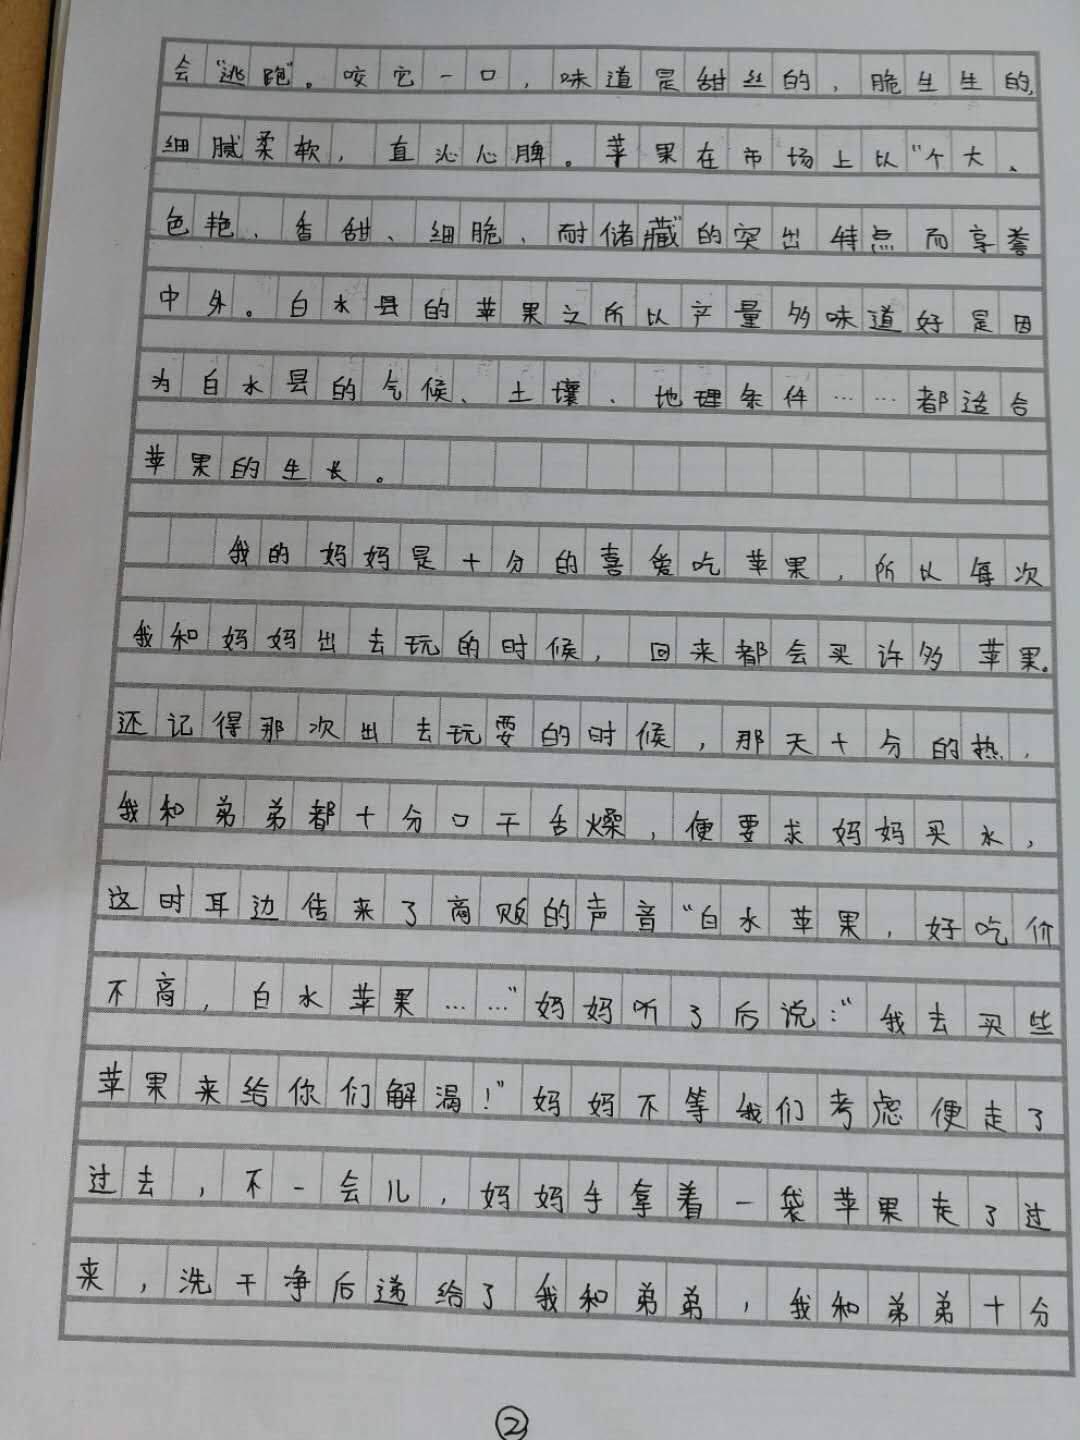 会“逃跑”。咬它一口，味道是甜丝的，脆生生的，
细腻柔软，直沁心脾。苹果在市场上以“个大、
色艳、香甜、细脆、耐储藏”的突出特点而享誉
中外。白水县的苹果之所以产量多味道好是因
为白水县的气候、土壤、地理条件……都适合
苹果的生长。
我的妈妈是十分的喜爱吃苹果，所以每次
我和妈妈出去玩的时候，回来都会买许多苹果。
还记得那次出去玩耍的时候，那天十分的热，
我和弟弟都十分口干舌燥，便要求妈妈买水，
这时耳边传来了商贩的声音“白水苹果，好吃价
不高，白水苹果……”妈妈听了后说：“我去买些
苹果来给你们解渴！”妈妈不等我们考虑便走了
过去，不一会儿，妈妈手拿着一袋苹果走了过
来，洗干净后递给了我和弟弟，我和弟弟十分
②